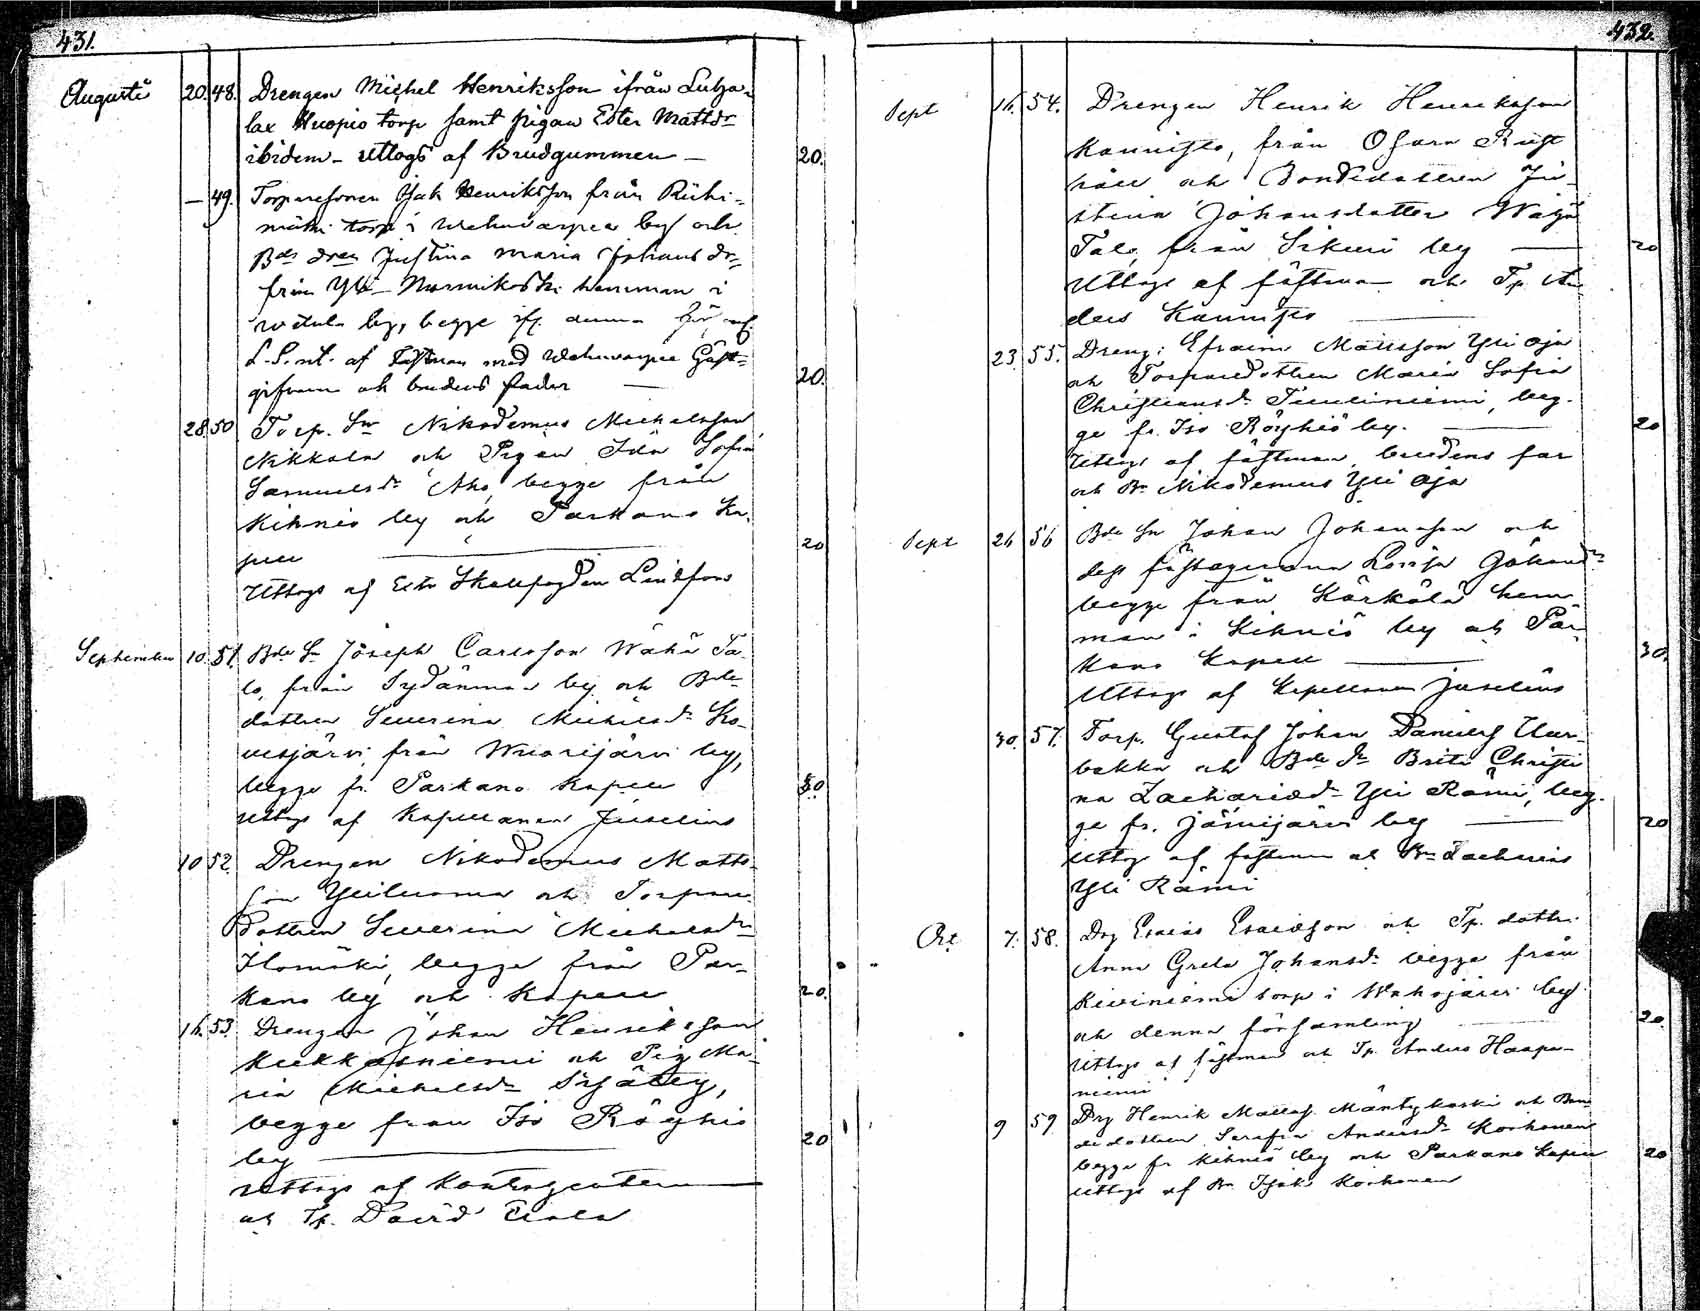 431.
Augusti 20. 48. Drengen Michel Henriksson ifrån
lax Kuopio torp samt pigan Ester Mattdr
ibidem – uttogs af Brudgummen – 20.
– 49. Torparesonen Isak Henriksson från Riihi-
mäki torp i by och
Bds dren Justina Maria Johans dr
från Yli- Nurmikoski hemman i
by, begge ifr. denna
L.S. af fästman med Gäst-
gifvaren och brudens fader – 20.
28 50 Torp. Sn Nikodemus Michelsson
Nikkola och Pigan Ida Sofia
Samuelsdr Aho, begge från
Kihniö by och Parkano Ka-
pell – 20
Uttogs af Lindfors
September 10. 51. Bde Sn Joseph Carlsson Wähä Ta-
lo, från Sydänmaa by och Bde
dottren Severina Michelsdr Ko-
vesjärvi, från Wuorijärvi by,
begge fr. Parkano Kapell
Uttogs af Kapellanen Juselius
10 52. Drengen Nikodemus Matts-
son Yliluoma och Torpare
Dottren Severina Michelsdr
Ilomäki, begge från Par-
kano by och Kapell 20.
16. 53. Drengen Johan Henriksson
Kukkasniemi och Pig. Ma-
ria Michelsdr
begge från Iso Röyhiö
by – 20
Uttogs af Kontragenten
och Tp. David
432.
Sept 16. 54. Drengen Henrik Henriksson
Kannisto, från Osara Rust
håll och Bondedottren Ju-
stina Johansdotter Wähä
Talo, från Sikuri by – 20
Uttogs af fästman och Tp. An-
ders Kannisto –
23. 55. Dreng: Efraim Mattsson Yli Oja
och Torparedottren Maria Sofia
Christiansdr Tuuliniemi, beg-
ge fr. Iso Röyhiö by. – 20
Uttogs af fästman, brudens far
och Bn Nikodemus Yli Oja
Sept 26 56 Bde Sn Johan Johansson och
dess fästeqvinna Lovisa Johansdr
begge från Kärkölä hem-
man i Kihniö by och Par-
kano Kapell – 30.
Uttogs af Kapellanen Juselius
30. 57. Torp. Gustaf Johan Daniels
bakka och Bde dr Brita Christi
na Zachariædr Yli Rämi, beg-
ge fr. Jämijärvi by – 20
Uttogs af fästman och Bn Zacharias
Yli Rämi
Oct 7. 58. Drg Esaias Esaiasson och Tp. dottr.
Anna Greta Johansdr begge från
Kiviniemi torp i by
och denna församling – 20.
Uttogs af fästman och Tp. Anders Haapa-
niemi
9 59 Drg Henrik Mattss. Mäntykoski och Bon-
dedottren Serafia Andersdr Korhonen
begge fr Kihniö by och Parkano Kapell 20
Uttogs af Bn Isak Korhonen